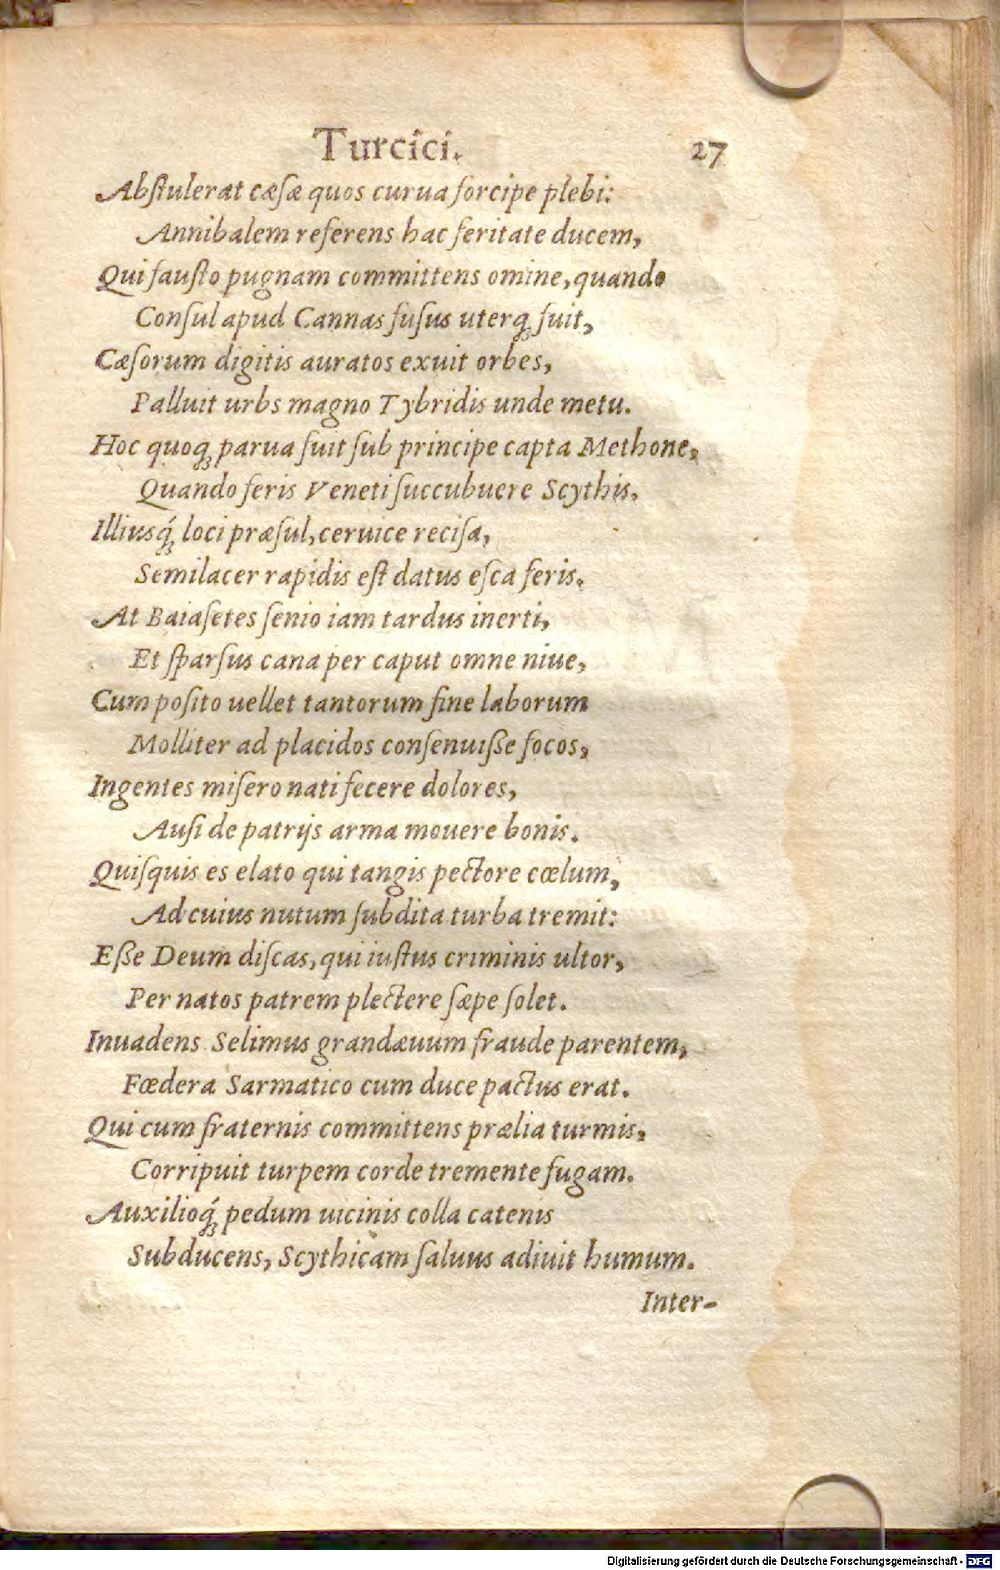 Turcici. 27
Abſtulerat cæſæ quos curua forcipe plebi:
Annibalem referens hac feritate ducem,
Qui fauſto pugnam committens omine, quando
Conſul apud Cannas fuſus uterq; fuit,
Cæſorum digitis auratos exuit orbes,
Palluit urbs magno Tybridis unde metu.
Hoc quoq; parua fuit ſub principe capta Methone,
Quando feris Veneti ſuccubuere Scythis.
Illiusq́; loci præſul, ceruice reciſa,
Semilacer rapidis eſt datus eſca feris.
At Baiaſetes ſenio iam tardus inerti,
Et ſparſus cana per caput omne niue,
Cum poſito uellet tantorum fine laborum
Molliter ad placidos conſenuiſſe focos,
Ingentes miſero nati fecere dolores,
Auſi de patrijs arma mouere bonis.
Quiſquis es elato qui tangis pectore cœlum,
Ad cuius nutum ſubdita turba tremit:
Eſſe Deum diſcas, qui iuſtus criminis ultor,
Per natos patrem plectere ſæpe ſolet.
Inuadens Selimus grandæuum fraude parentem,
Fœdera Sarmatico cum duce pactus erat.
Qui cum fraternis committens prælia turmis,
Corripuit turpem corde tremente fugam.
Auxilioq́; pedum uicinis colla catenis
Subducens, Scythicam ſaluus adiuit humum.
Inter-
Digitalisierung gefördert durch die Deutsche Forschungsgemeinschaft - DFG